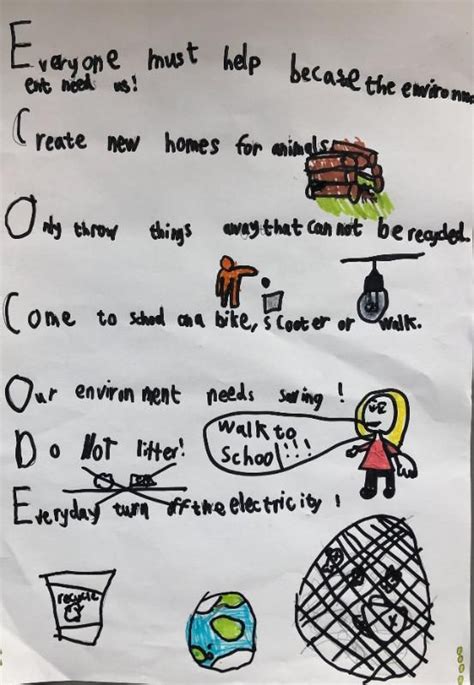 Everyone must help becase the environm
ent need us!
Create new homes for animals
Only throw things away that can not be recycled.
Come to school on a bike, scooter or walk.
Our environment needs saving!
Do Not litter!
walk to
school!!!
Everyday turn off the electricity!
recycle